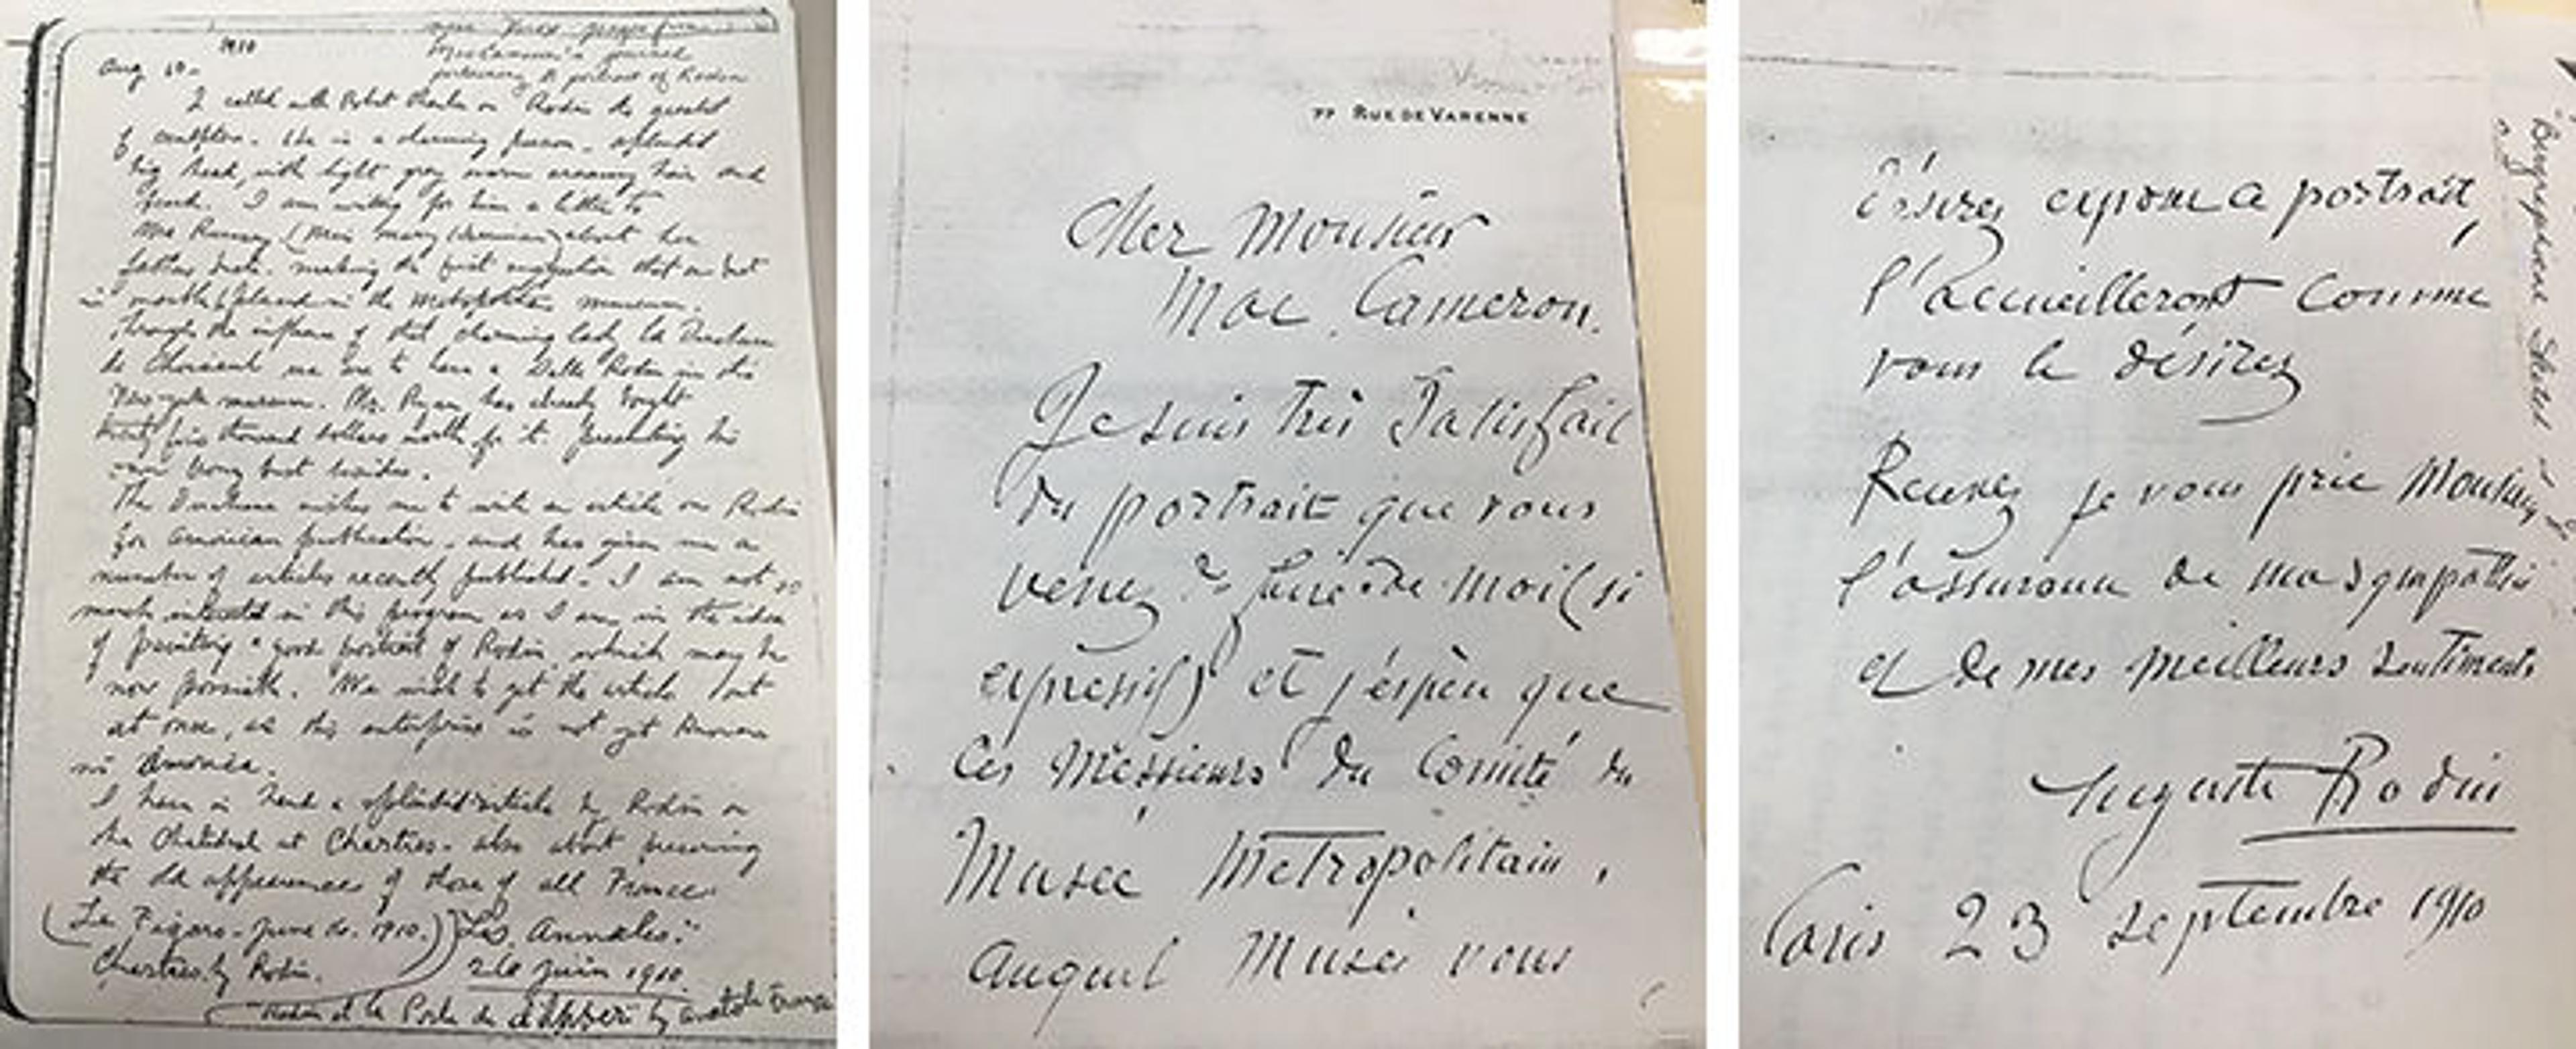 1910
MacCameron's journal
pertaining to portrait of Rodin
Aug 10 -
I called with Robert on Rodin the greatest
of sculptors. He is a charming person - splendid
big head, with light gray warm creamy hair and
beard. I am writing for him a letter to
Mrs Rumsey (Miss Mary Harriman) about her
father's bust. making the first suggestion that our bust
in marble be placed in the Metropolitan museum.
Through the influence of that charming lady, la Duchesse
de Choiseul we are to have a Salle Rodin in the
New York museum. Mr. Ryan has already bought
twenty five thousand dollars worth for it. presenting his
own bronze bust besides.
The Duchesse wishes me to write an article on Rodin
for American publication, and has given me a
number of articles recently published - I am not so
much interested in this program as I am in the idea
of painting a good portrait of Rodin which may be
now possible. We wish to get the article out
at once, as this enterprise is not yet known
in America.
I have in hand a splendid article by Rodin on
the Cathedral at Chartres - also about preserving
the old appearances of those of all France
(Le Figaro - June 1910.) "Les Annales."
Chartres by Rodin. 26 Juin 1910.
Rodin et la Porte de by Anatole France
77 RUE DE VARENNE
Cher Monsieur
Mac Cameron.
Je suis très Satisfait
du portrait que vous
venez de faire de moi (si
expressif) et j'espère que
les Messieurs du Comité du
Musée Métropolitain,
auquel Musée vous
désirez exposer ce portrait,
l'accueilleront comme
vous le désirez
Recevez je vous prie Monsieur
l'assurance de ma sympathie
et de mes meilleurs sentiments
Auguste Rodin
Paris 23 Septembre 1910
Biographical Sketch